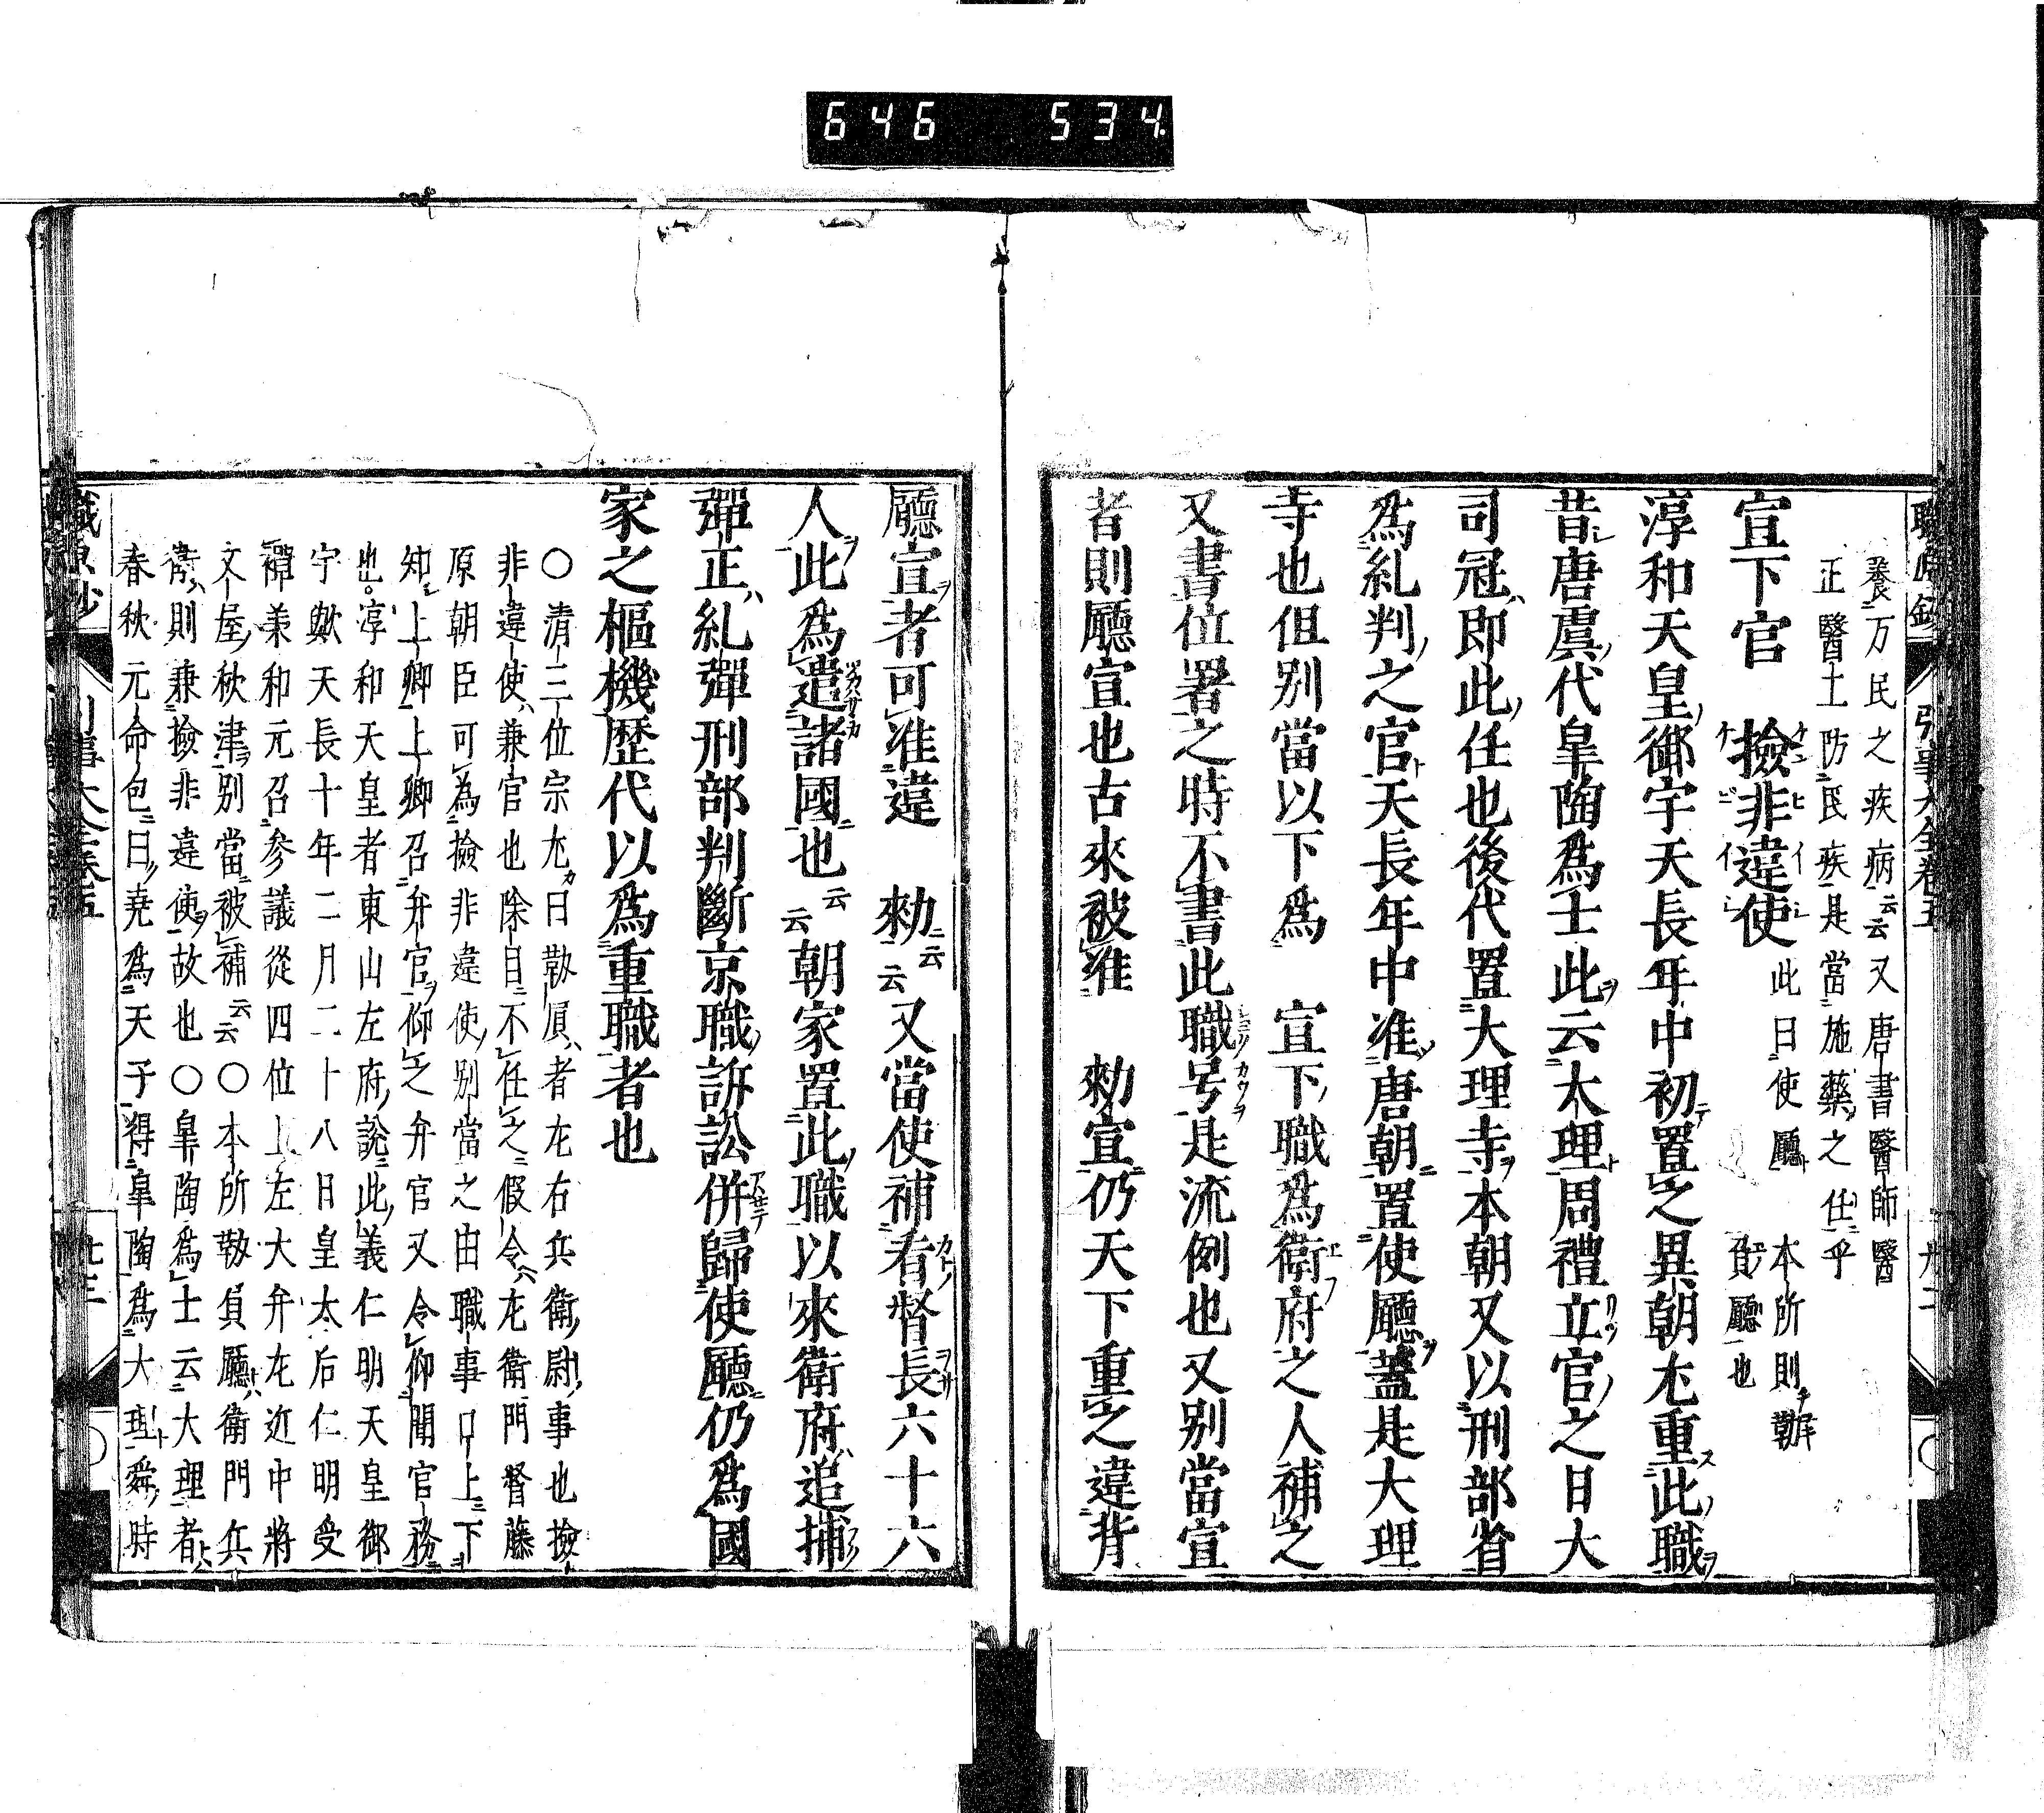 646 534
養万民之疾病云云又唐書醫師醫
正醫士防民疾是當施藥之任乎
宣下官 撿非違使 此曰使廳 本所則靱
負廳也
淳和天皇御宇天長年中初置之異朝尤重此職
昔唐虞代皐陶爲士此云大理周禮立官之日大
司冠即此任也後代置大理寺本朝又以刑部省
爲糺判之官天長年中准唐朝置使廳蓋是大理
寺也但别當以下爲 宣下職爲衛府之人補之
又書位署之時不書此職号是流例也又别當宣
者則廳宣也古來被准 勅宣仍天下重之違背
廳宣者可准違 勅云云又當使補看督長六十六
人此爲遣諸國也云云朝家置此職以來衛府追捕
彈正糺彈刑部判斷京職訴訟併歸使廳仍爲國
家之樞機歴代以爲重職者也
〇清三位宗尤曰靱負者左右兵衛尉事也撿
非違使兼官也除目不任之假令左衛門督藤
原朝臣可為撿非違使别當之由職事口上下
知上卿上卿召弁官仰之弁官又令仰聞官務
也淳和天皇者東山左府說此義仁明天皇御
宇歟天長十年二月二十八日皇太后仁明受
禪兼和元召参議從四位上左大弁左近中將
文屋秋津别當被補云云〇本所靱負廳衛門兵
衛則兼撿非違使故也〇皐陶爲士云大理者
春秋元命包曰堯爲天子得皐陶爲大理舜時